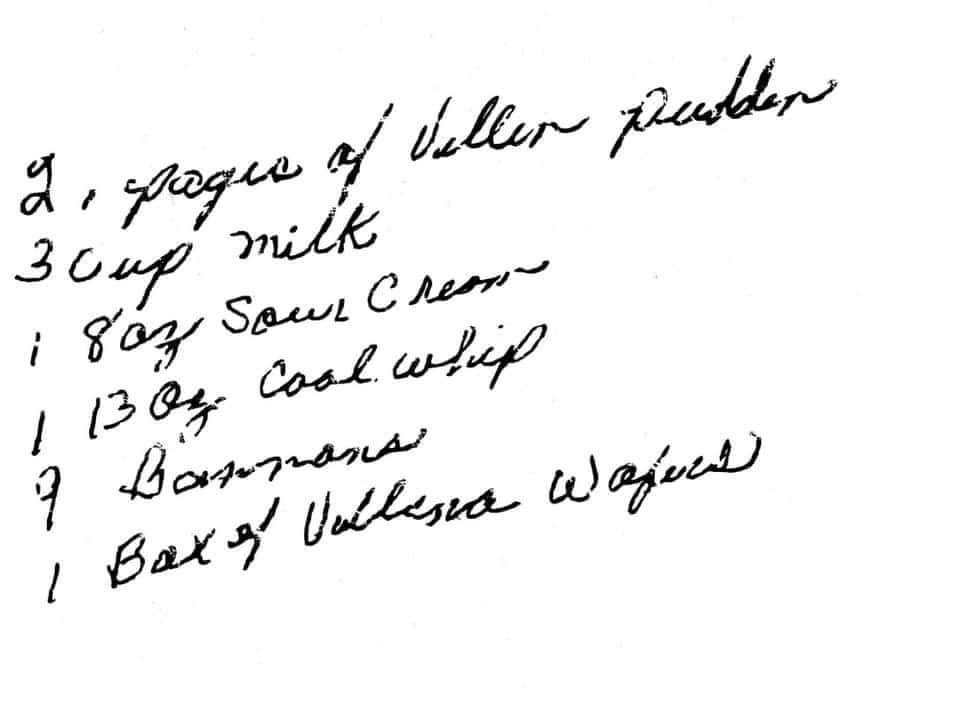 2. pages of Villin pudden
3 Cup milk
1 8 oz Sour Cream
1 13 Oz. Cool whip
9 Bannans
1 Box of Villinia Wafers